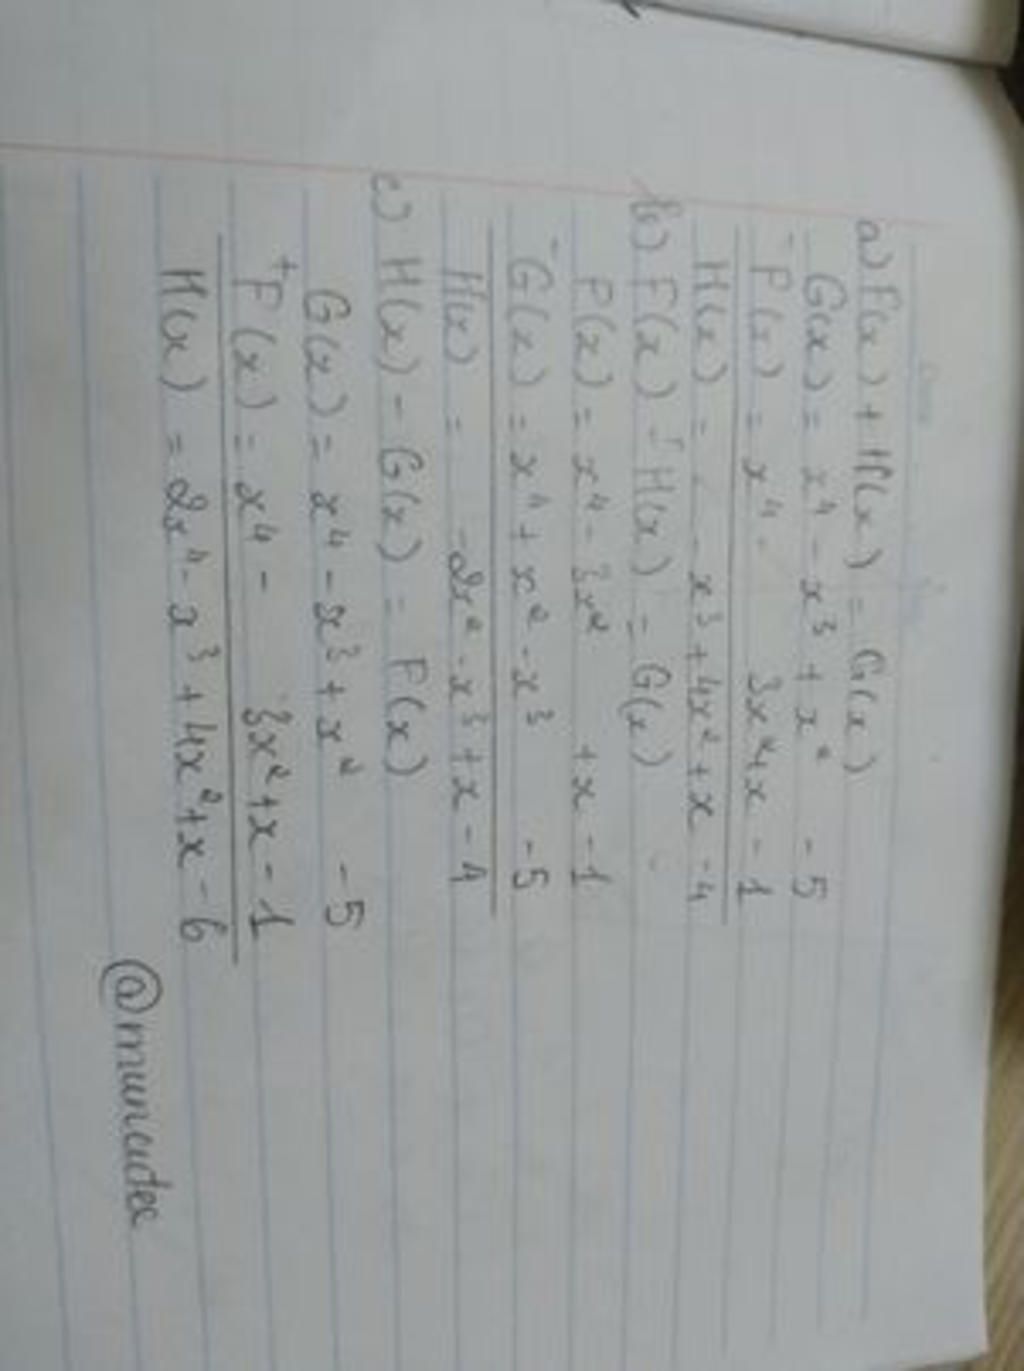 a) F(x) + H(x) = G(x)
G(x) = x⁴ - x³ + x² - 5
- F(x) = x⁴ - 3x² + x - 1
H(x) = - x³ + 4x² + x - 4
b) F(x) - H(x) = G(x)
F(x) = x⁴ - 3x² + x - 1
- G(x) = x⁴ + x² - x³ - 5
H(x) = -2x² - x³ + x - 4
c) H(x) - G(x) = F(x)
G(x) = x⁴ - x³ + x² - 5
+ F(x) = x⁴ - 3x² + x - 1
H(x) = 2x⁴ - x³ + 4x² + x - 6